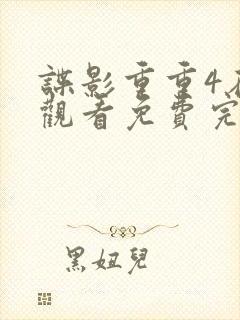 諜影重重4
觀看免費完
黑妞兒